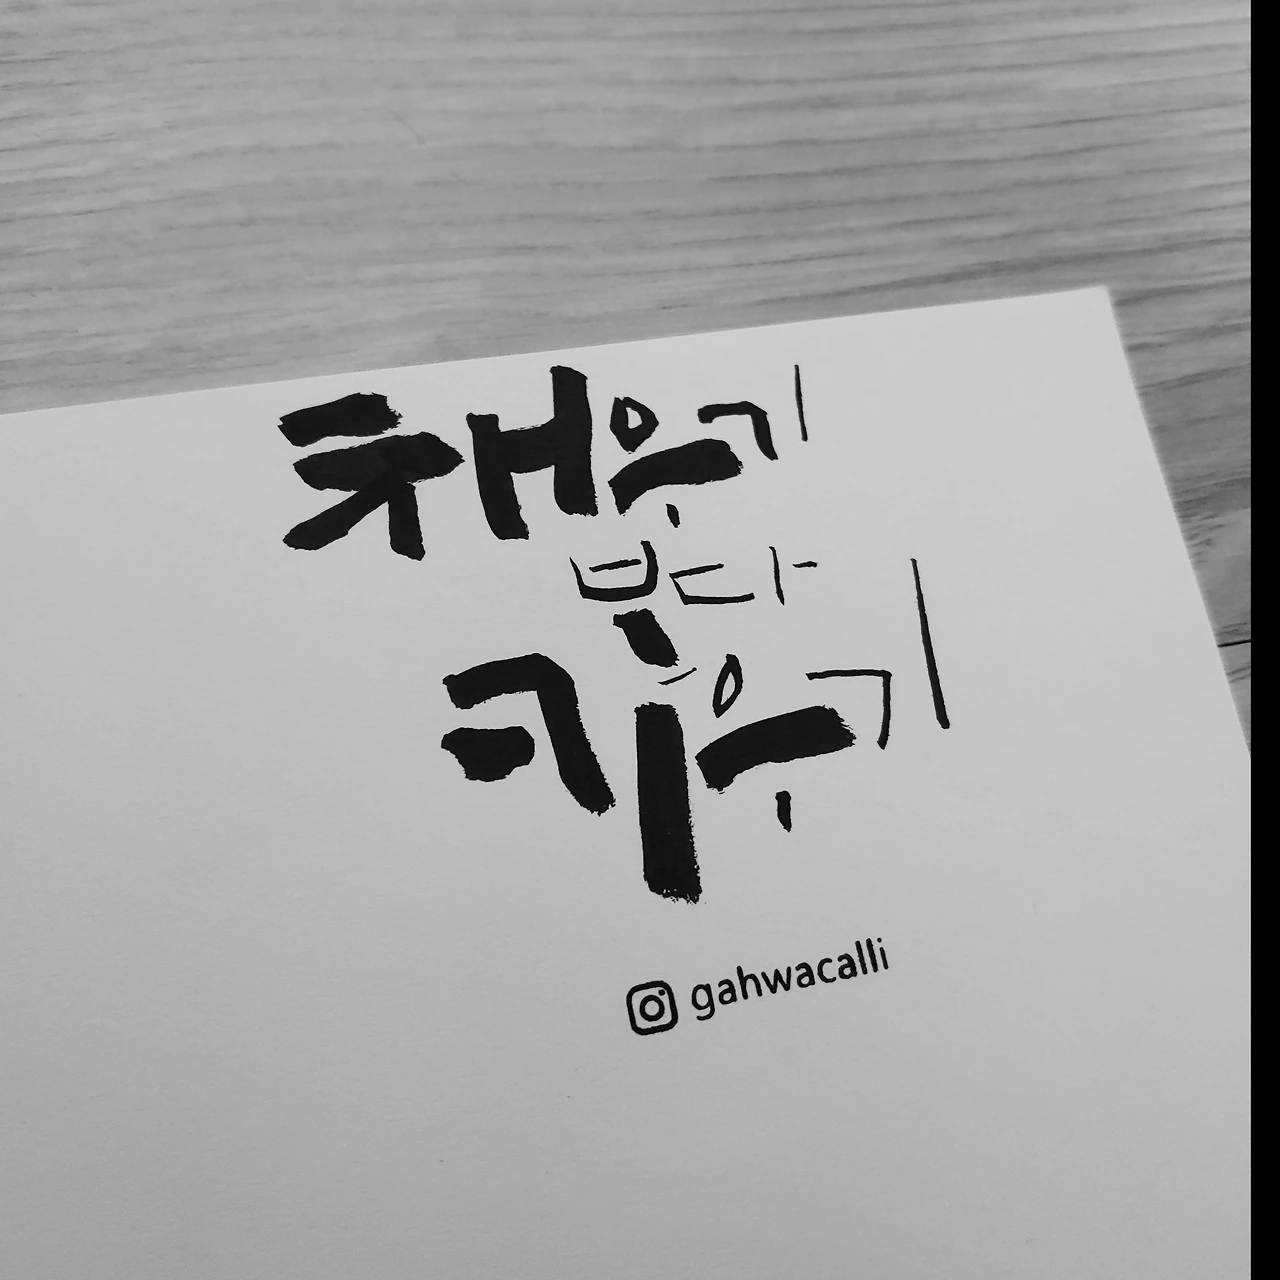 채우기
보다
키우기
gahwacalli